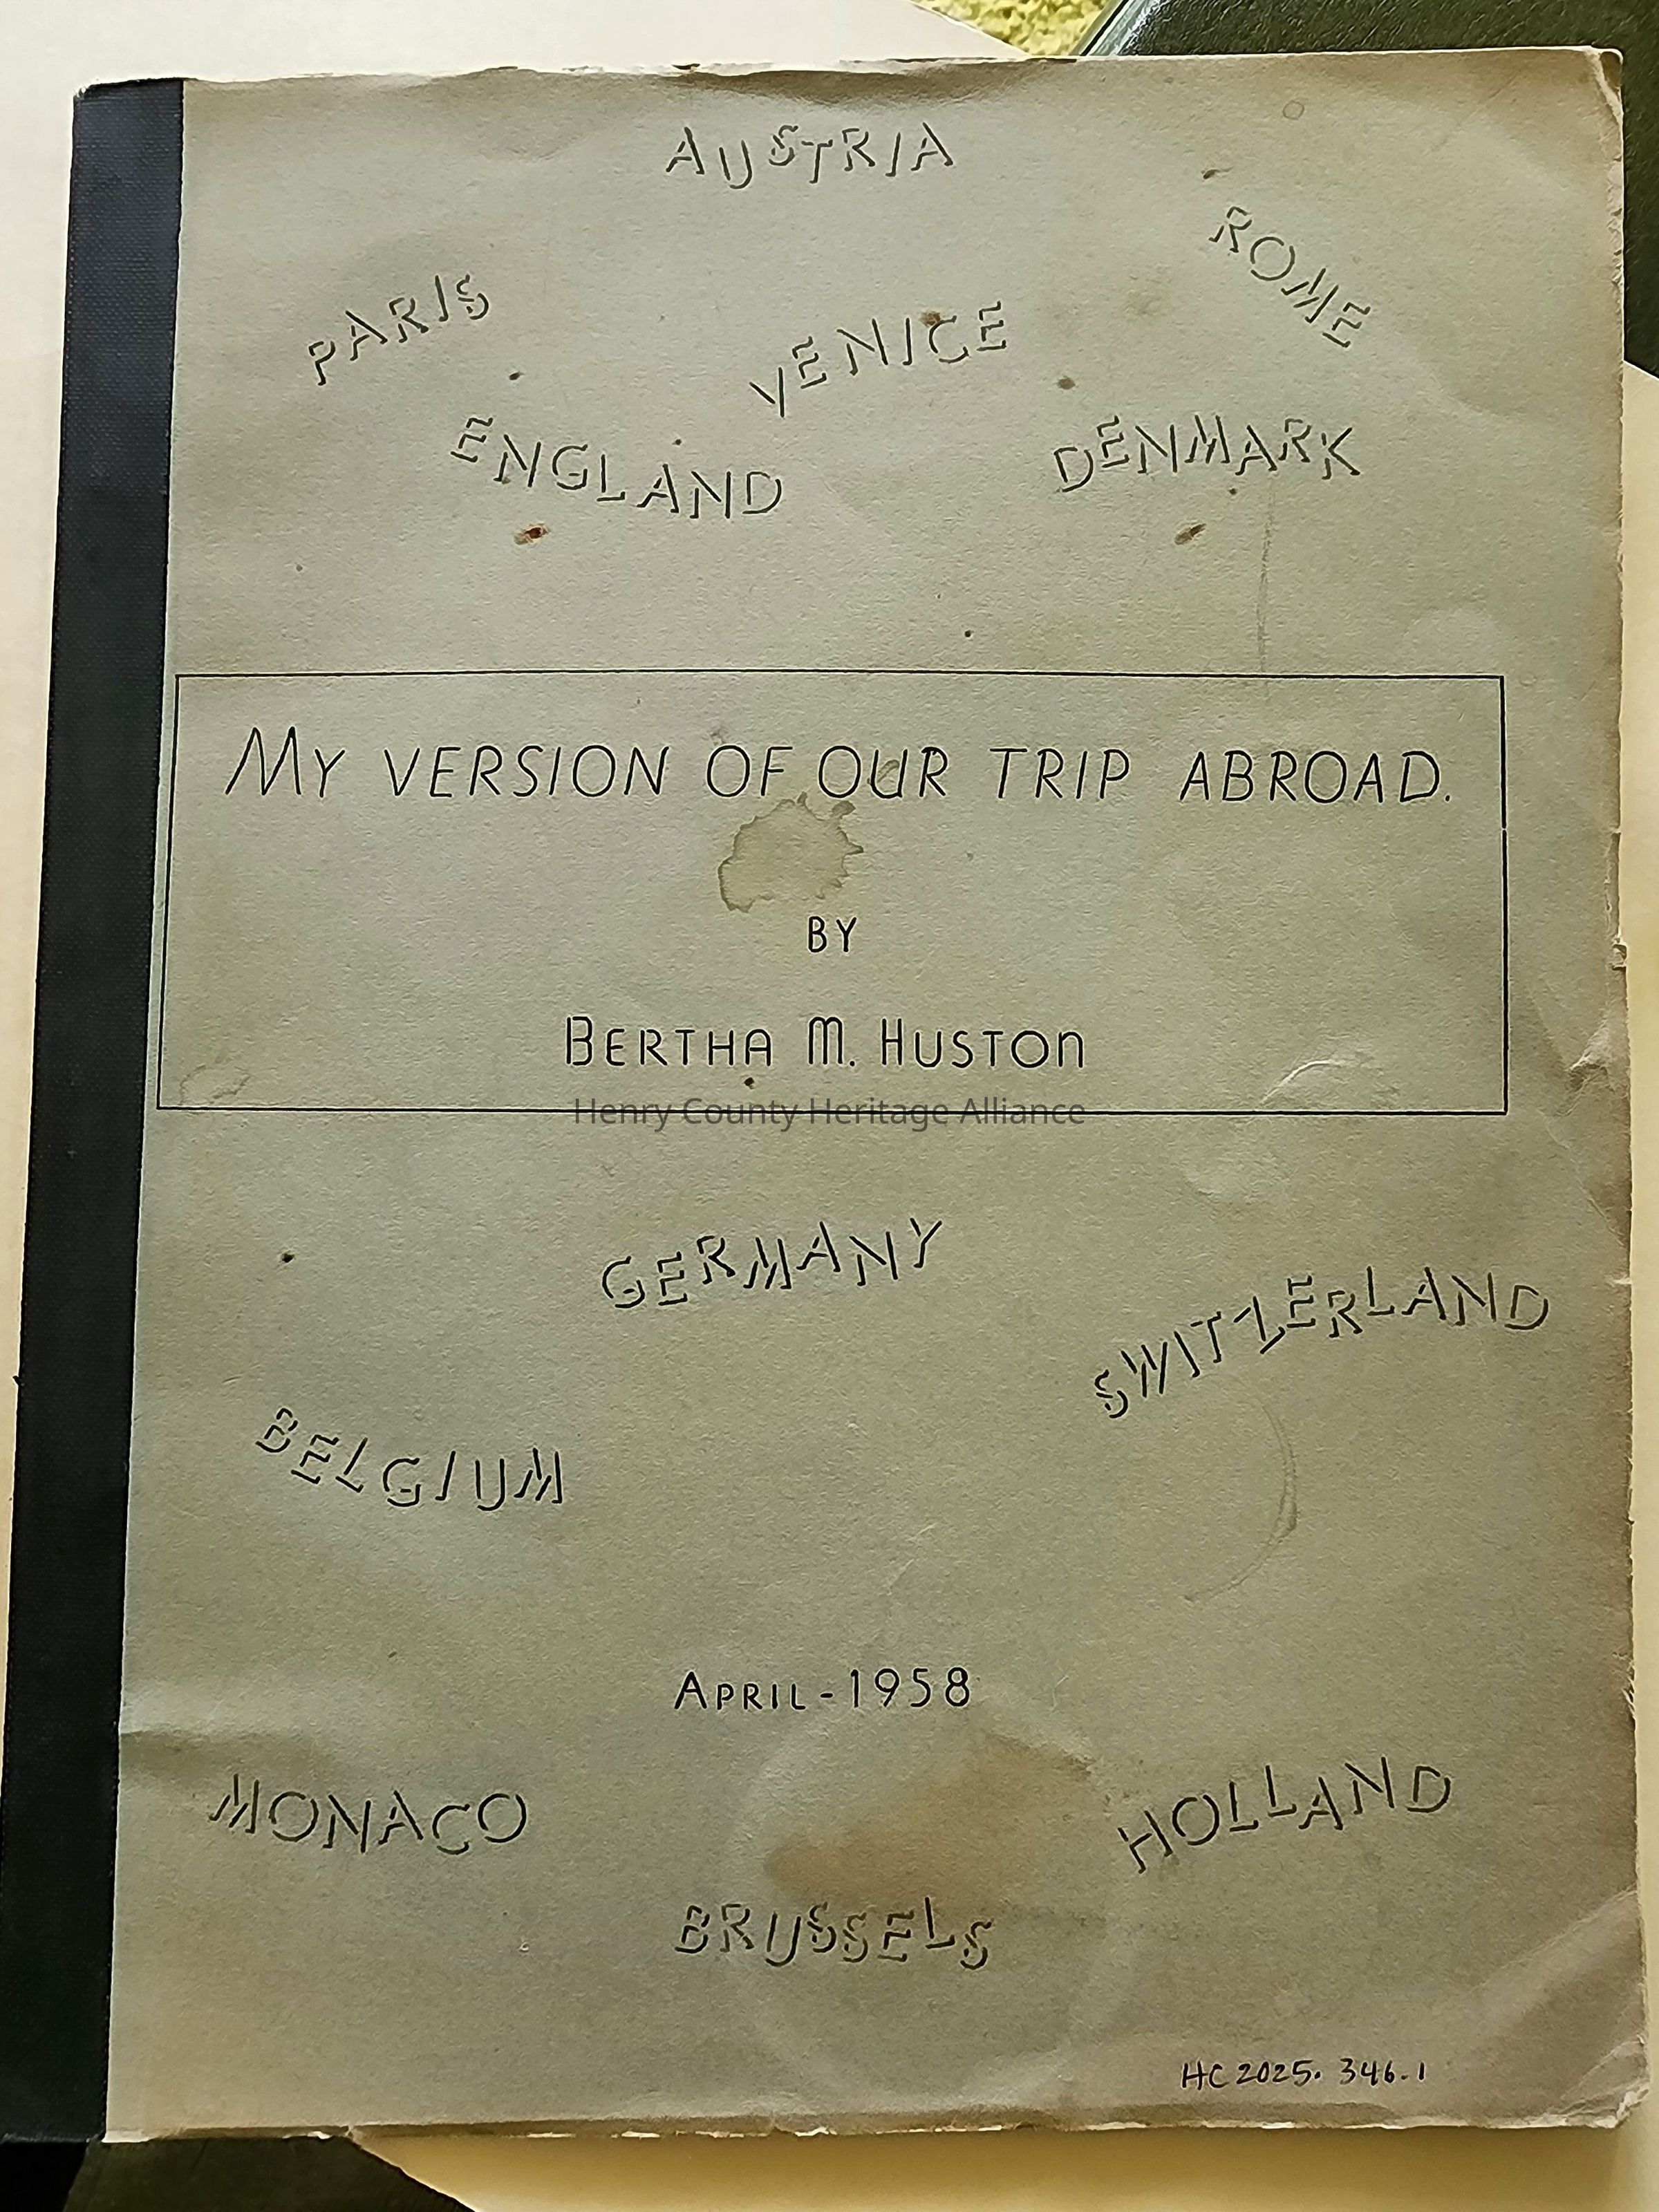 AUSTRIA
ROME
PARIS
VENICE
ENGLAND
DENMARK
MY VERSION OF OUR TRIP ABROAD.
BY
BERTHA M. HUSTON
Henry County Heritage Alliance
GERMANY
SWITZERLAND
BELGIUM
APRIL-1958
MONACO
HOLLAND
BRUSSELS
HC 2025. 346.1